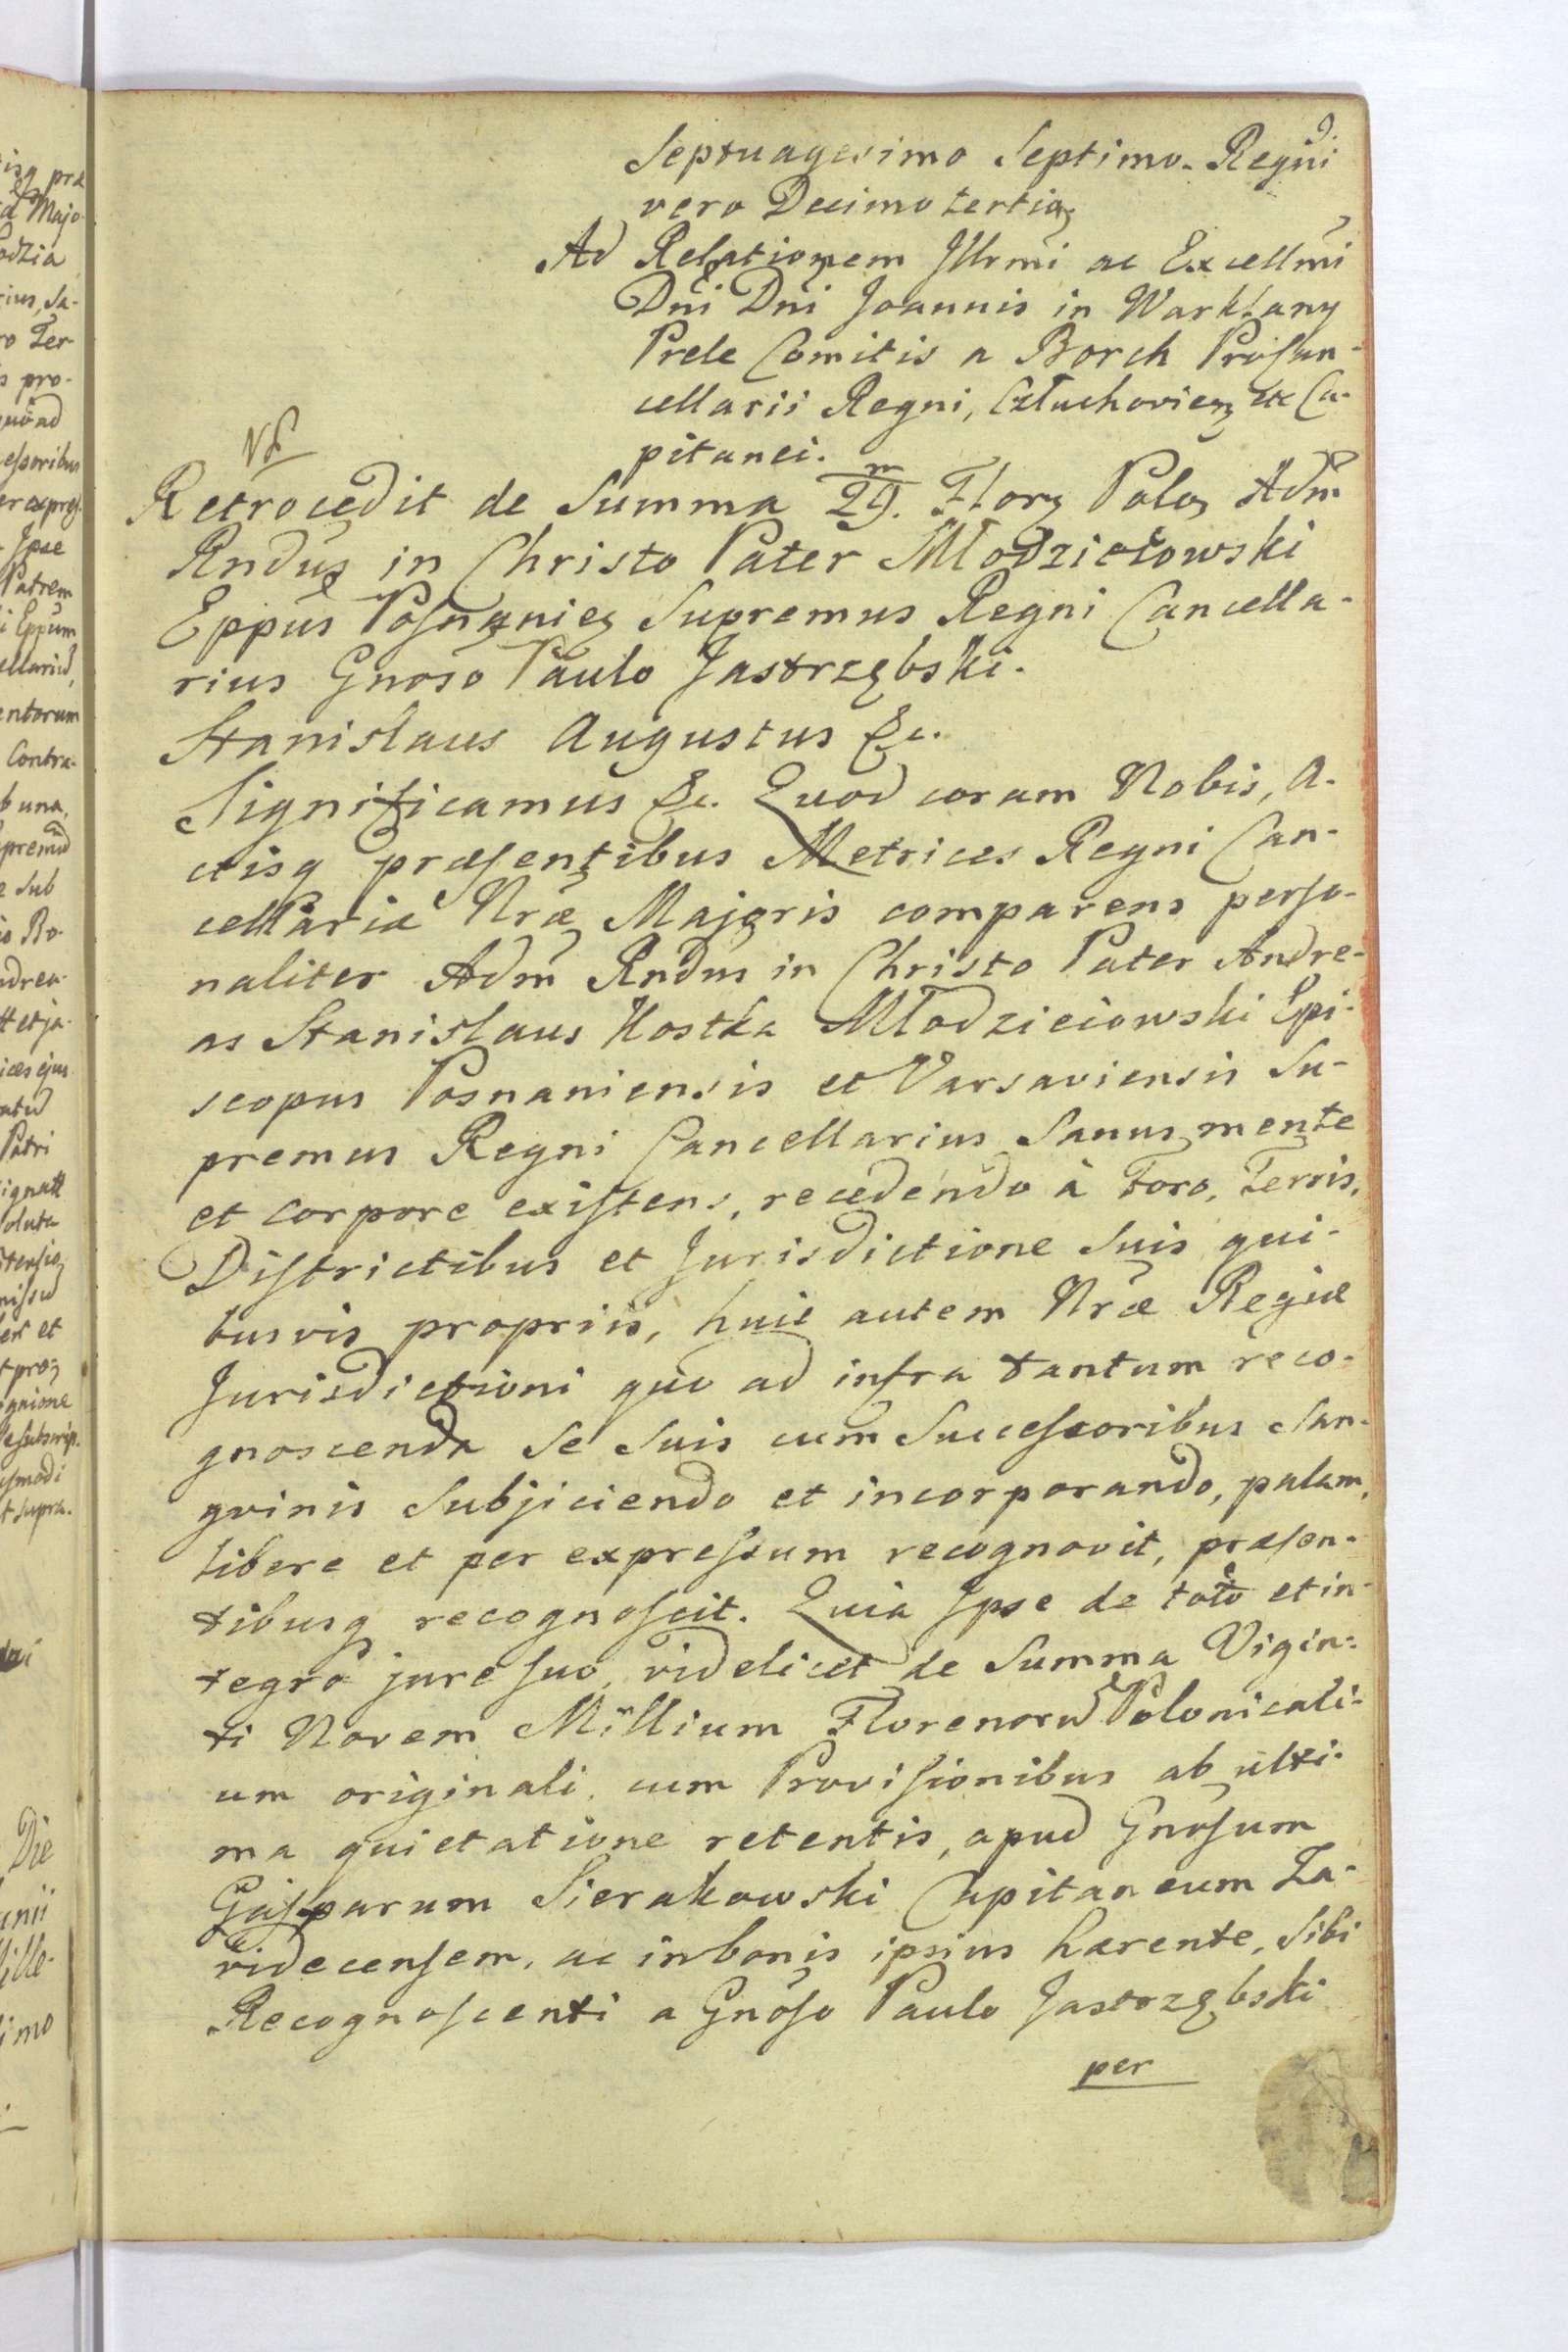 Septuagesimo Septimo. Regni
vero Decimo tertio
Ad Relationem Illrmi ac Excellmi
Dni Dni Joannis in Warklany
Prele Comitis a Borch Procan-
cellarii Regni, Człuchovien &c Ca-
pitanei.
Retrocedit de Summa 29.m Flor Polo Adm
Rndus in Christo Pater Młodzieiowski
Eppus Posnanien Supremus Regni Cancella-
rius Gnoso Paulo Jastrzębski.
Stanislaus Augustus &c.
Significamus &c. Quod coram Nobis, A-
ctisq præsentibus Metrices Regni Can-
cellariæ Nræ Majoris comparens perso-
naliter Adm Rndus in Christo Pater Andre-
as Stanislaus Kostka Młodzieiowski Epi-
scopus Posnaniensis et Varsaviensis Su-
premus Regni Cancellarius Sanus mente
et corpore existens, recedendo à Foro, Terris,
Districtibus et Jurisdictione Suis qui-
busvis propriis, huic autem Nræ Regiæ
Jurisdictioni quo ad infra tantum reco-
gnoscenda Se Suis cum Successoribus San-
gvinis Subjiciendo et incorporando, palam,
libere et per expressum recognovit, præsen-
tibusq recognoscit. Quia Ipse de toto et in-
tegro jure suo, videlicet de Summa Vigin-
ti Novem Millium Florenoru Polonicali-
um originali, cum Provisionibus ab ulti-
ma quietatione retentis, apud Gnosum
Gasparum Sierakowski Capitaneum Za-
videcensem, ac in bonis ipsius hærente, Sibi
Recognoscenti a Gnoso Paulo Jastrzębski
per